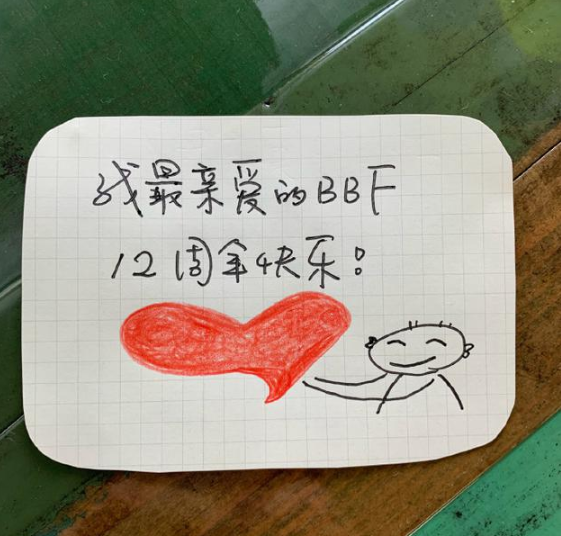 我最亲爱的BBF
12周年快乐!